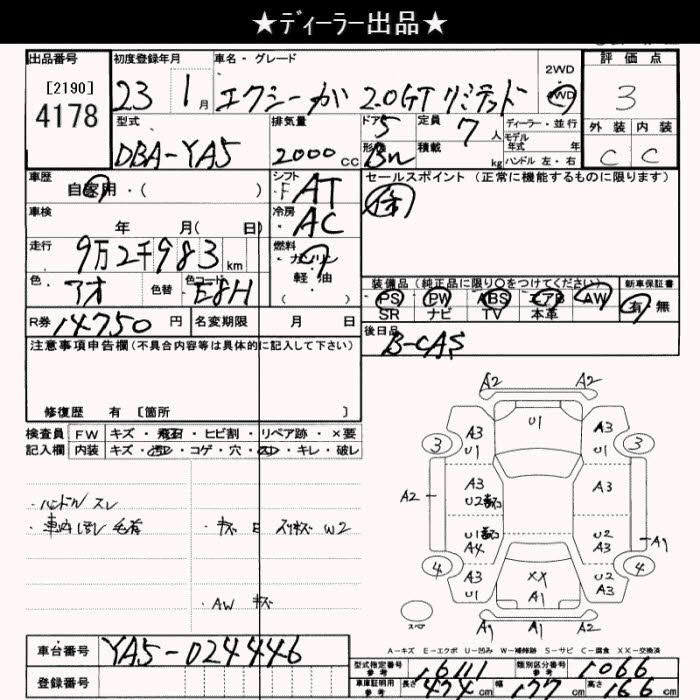 ★ディーラー出品★
出品番号 初度登録年月 車名・グレード 2WD 評価点
[2190]
4178
23 1月 エクシーガ 2.0GT リミテッド 4WD 3
型式 排気量 ドア 定員 ディーラー・並行 外装 内装
DBA-YA5 2000cc 5 7人 モデル年式 年 C C
形状 Bn 積載 kg ハンドル 左・右
車歴 シフト セールスポイント (正常に機能するものに限ります)
自家用・( ) F AT
車検 冷房
年 月( 日) AC
走行 燃料
9万2千983km ガソリン
色 色替 色コード 軽油
アオ E8H
装備品(純正品に限り○をつけてください) 新車保証書
PS PW ABS エアB AW 有 無
SR ナビ TV 本革
R券 14750円 名変期限 月 日
後日品
B-CAS
注意事項申告欄(不具合内容等は具体的に記入して下さい)
修復歴 有 [箇所 ]
検査員 FW キズ・飛石・ヒビ割・リペア跡・×要
記入欄 内装 キズ・汚レ・コゲ・穴・スレ・キレ・破レ
・ハンドル スレ
・キズ E スリキズ W2
・AW キズ
A2 A2
U1
A3 U1 A3 U1
3 3
A2 A3 U2 A3
U1 A4 U2 A3 A1
4 4
A3 U2 XX A1 U2 A3
スペア A1 A1 A2
A-キズ E-エクボ U-凹み W-補修跡 S-サビ C-腐食 XX-交換済
車台番号 YA5-024446
登録番号
型式指定番号 参考 16111 類別区分番号 参考 1066
車庫証明用 参考 長さ 474cm 幅 177cm 高さ 166cm